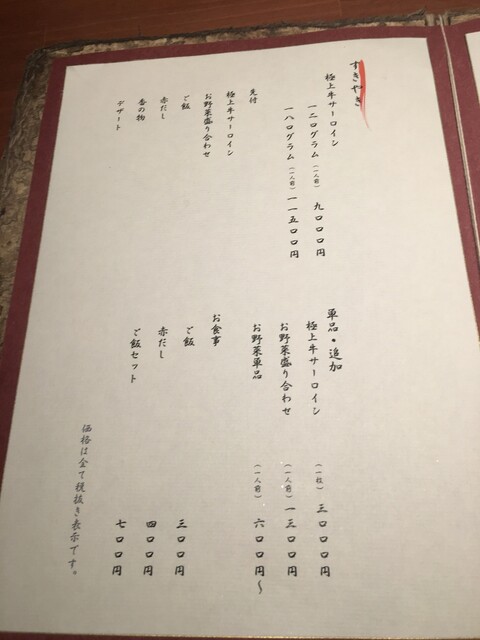 すきやき
極上牛サーロイン
一二〇グラム（一人前） 九〇〇〇円
一八〇グラム（一人前） 一一五〇〇円
先付
極上牛サーロイン
お野菜盛り合わせ
ご飯
赤だし
香の物
デザート
単品・追加
極上牛サーロイン （一枚） 三〇〇〇円
お野菜盛り合わせ （一人前） 一三〇〇円
お野菜単品 （一人前） 六〇〇円〜
お食事
ご飯 三〇〇円
赤だし 四〇〇円
ご飯セット 七〇〇円
価格は全て税抜き表示です。